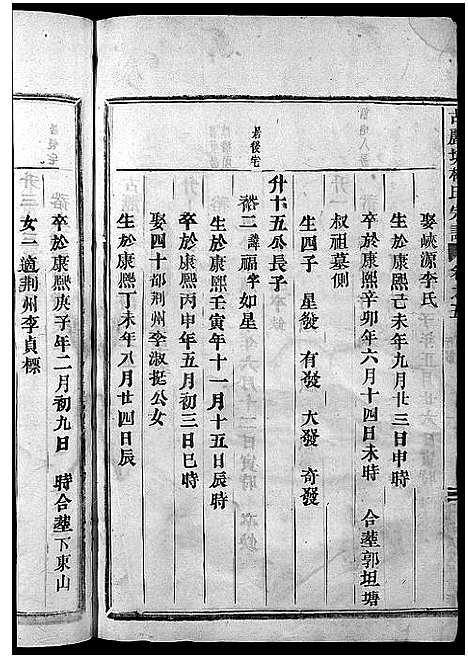 娶峽源李氏
生於康熙己未年九月廿三日申時
卒於康熙辛卯年六月十四日未時 合塟郭坦塘
叔祖墓側
生四子 星發 有發 大發 奇發
升十五公長子
居後宅
諱福 字如星
生於康熙壬寅年十一月十五日辰時
卒於康熙丙申年五月初三日巳時
娶四十都荆州李淑挺公女
生於康熙丁未年八月廿四日辰
卒於康熙庚子年二月初九日 時合塟下東山
女一適荆州李貞標